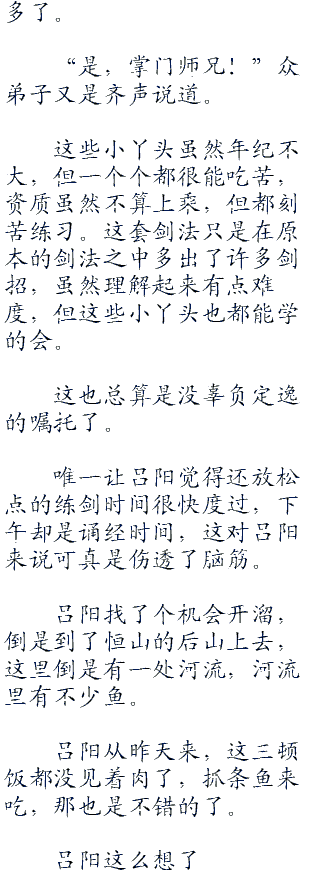 多了。
“是，掌门师兄！”众
弟子又是齐声说道。
这些小丫头虽然年纪不
大，但一个个都很能吃苦，
资质虽然不算上乘，但都刻
苦练习。这套剑法只是在原
本的剑法之中多出了许多剑
招，虽然理解起来有点难
度，但这些小丫头也都能学
的会。
这也总算是没辜负定逸
的嘱托了。
唯一让吕阳觉得还放松
点的练剑时间很快度过，下
午却是诵经时间，这对吕阳
来说可真是伤透了脑筋。
吕阳找了个机会开溜，
倒是到了恒山的后山上去，
这里倒是有一处河流，河流
里有不少鱼。
吕阳从昨天来，这三顿
饭都没见着肉了，抓条鱼来
吃，那也是不错的了。
吕阳这么想了